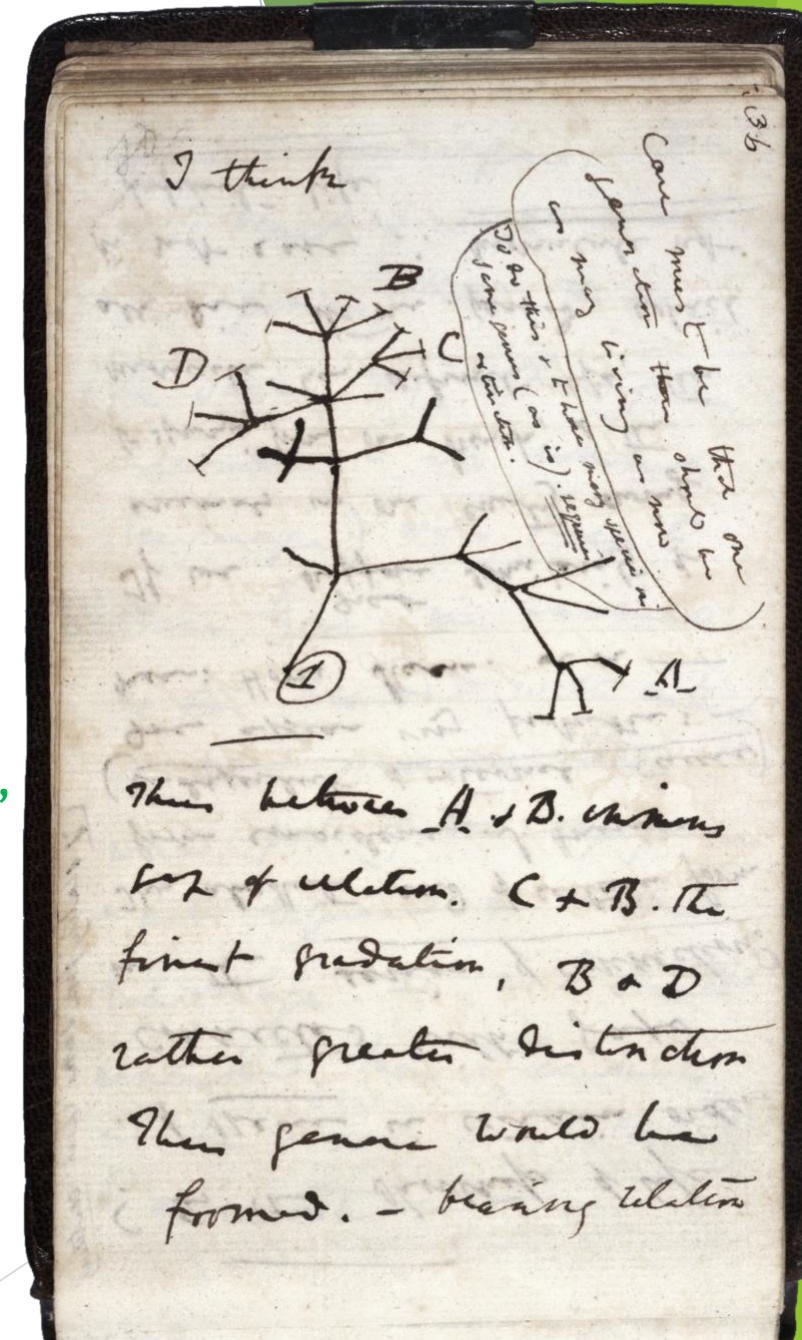 36
I think
Case must be that one
generation then should be
as many living as now
To do this & to have many species in
same genus (as is). requires
extinction.
B
C
D
A
1
Thus between A & B. immens
gap of relation. C & B. The
finest gradation, B & D
rather greater distinction
Thus genera would be
formed. — bearing relation
’